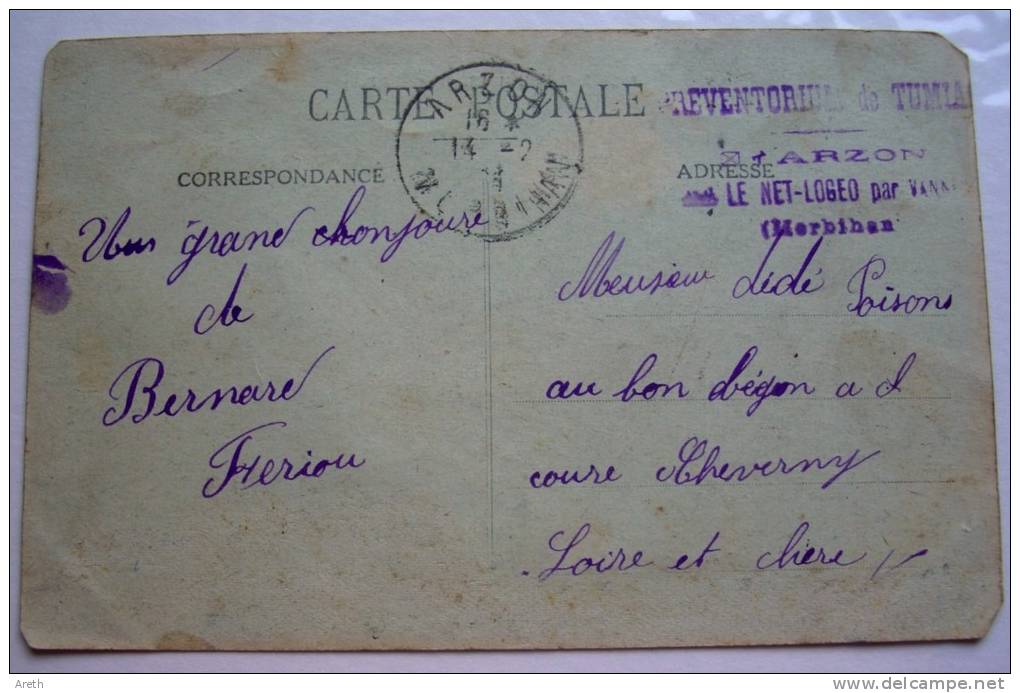 CARTE POSTALE
ARZON
16 *
14 -2
MORBIHAN
PREVENTORIUM de TUMIA
ARZON
LE NET-LOGEO par VANN
(Morbihan
CORRESPONDANCE
ADRESSE
Un grand chonjoure
de
Bernard
Feriou
Meusieur dédé Poisons
au bon
coure Cheverny
Loire et chère
Areth
www.delcampe.net